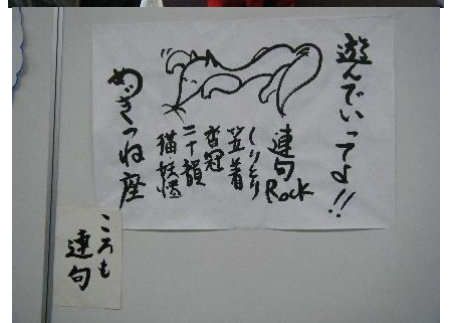 遊んでいってよ!!
連句Rock
しりとり
笠着
沓冠
二十韻
猫・妖怪
めぎつね座
ころも
連句